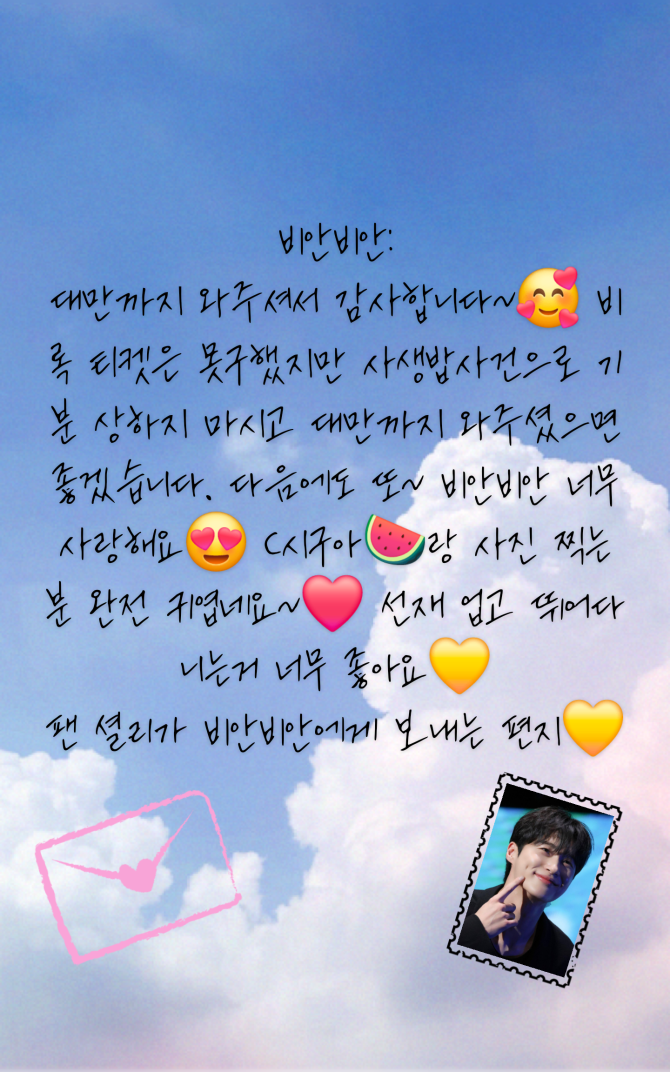 비안비안:
대만까지 와주셔서 감사합니다~🥰 비
록 티켓은 못구했지만 사생밥사건으로 기
분 상하지 마시고 대만까지 와주셨으면
좋겠습니다. 다음에도 또~ 비안비안 너무
사랑해요😍 C시구아🍉랑 사진 찍는
분 완전 귀엽네요~❤️ 선재 업고 뛰어다
니는거 너무 좋아요💛
팬 셜리가 비안비안에게 보내는 편지💛